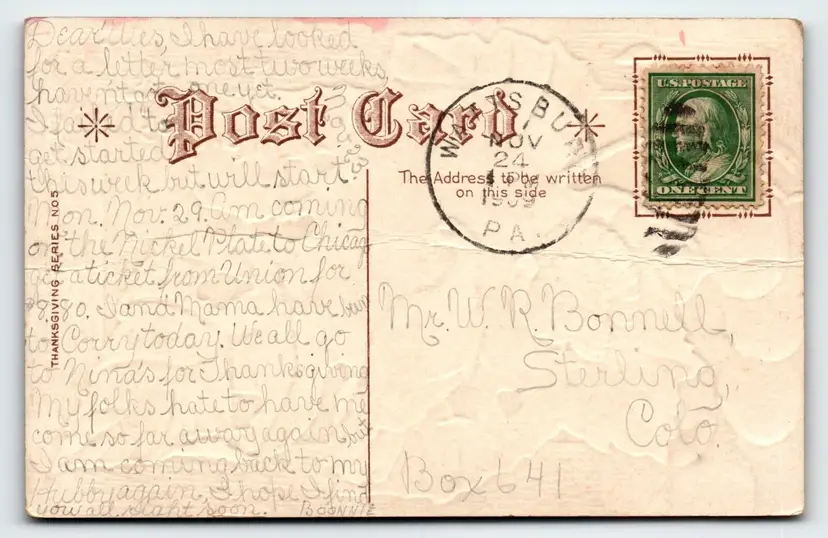 Dear Ties, I have looked
for a letter most two weeks,
haven't got one yet.
I failed to
get started
this week but will start
Mon. Nov. 29. Am coming
on the Nickel Plate to Chicag
get a ticket from Union for
$8.80. I and Mama have been
to Corry today. We all go
to Nina's for Thanksgiving
My folks hate to have me
come so far away again, but
I am coming back to my
Hubby again, I hope I find
you all right soon. BONNIE
Post Card
The Address to be written
on this side
THANKSGIVING SERIES NO 5
WATTSBURG
NOV
24
1909
PA.
U.S. POSTAGE
ONE CENT
Mr. W. R. Bonnell,
Sterling,
Colo.
Box 641